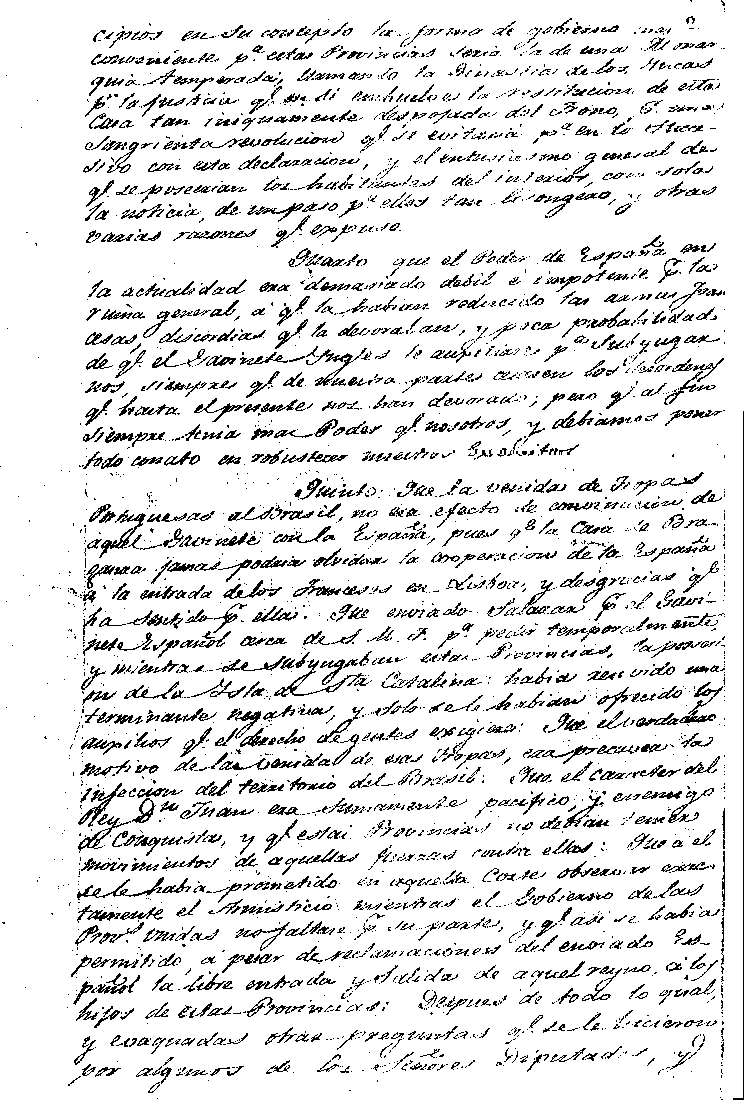 cipios en su concepto la forma de gobierno mas
conveniente pª estas Provincias seria la de una Monar
quia temperada, llamando la Dinastia de los Incas
pr la justicia qe en si enbuelve la restitucion de esta
Casa tan iniquamente despojada del Trono, pr una
sangrienta revolucion qe se evitaria pª en lo suce-
sivo con esta declaracion, y el entusiasmo general de
qe se poseerian los habitantes del interior, con solo
la noticia, de un paso pª ellos tan lisongero, y otras
varias razones qe expuso.
Quarto que el Poder de España en
la actualidad era demasiado debil é impotente pr la
ruina general, á qe la habian reducido las armas Fran
cesas, discordias qe la devoraban, y poca probabilidad
de qe el Gavinete Ingles le auxiliare pª subyugar
nos, siempre qe de nuestra parte cesen los desordenes
qe hasta el presente nos han devorado; pero qe al fin
siempre tenia mas Poder qe nosotros, y debiamos poner
todo conato en robustecer nuestros Exercitos
Quinto: Que la venida de Tropas
Portuguesas al Brasil, no era efecto de convinacion de
aquel Gavinete con la España, pues qe la Casa de Bra
ganza jamas podria olvidar la cooperacion de la España
á la entrada de los Franceses en Lisboa, y desgracias qe
ha sentido pr ellas. Que enviado Salazar pr el Gavi-
nete Español cerca de S. M. F. pª pedir temporalmente,
y mientras se subyugaban estas Provincias, la posesi
on de la Isla de Sta Catalina: habia recivido una
terminante negativa, y solo se le habian ofrecido los
auxilios qe el derecho de gentes exigiera: Que el verdadero
motivo de la venida de esas Tropas, era precaver la
infeccion del territorio del Brasil: Que el caracter del
Rey Dn Juan era sumamente pacifico, y enemigo
de Conquista, y qe estas Provincias no debian temer
movimientos de aquellas fuerzas contra ellas: Que a el
se le habia prometido en aquella Corte observar exac-
tamente el Armisticio mientras el Gobierno de las
Provs Unidas no faltare pr su parte, y qe asi se habia
permitido, á pesar de reclamaciones del enviado Es-
pañol la libre entrada y salida de aquel reyno, á los
hijos de estas Provincias: Despues de todo lo qual,
y evaquadas otras preguntas qe se le hicieron
por algunos de los Señores Diputados, y